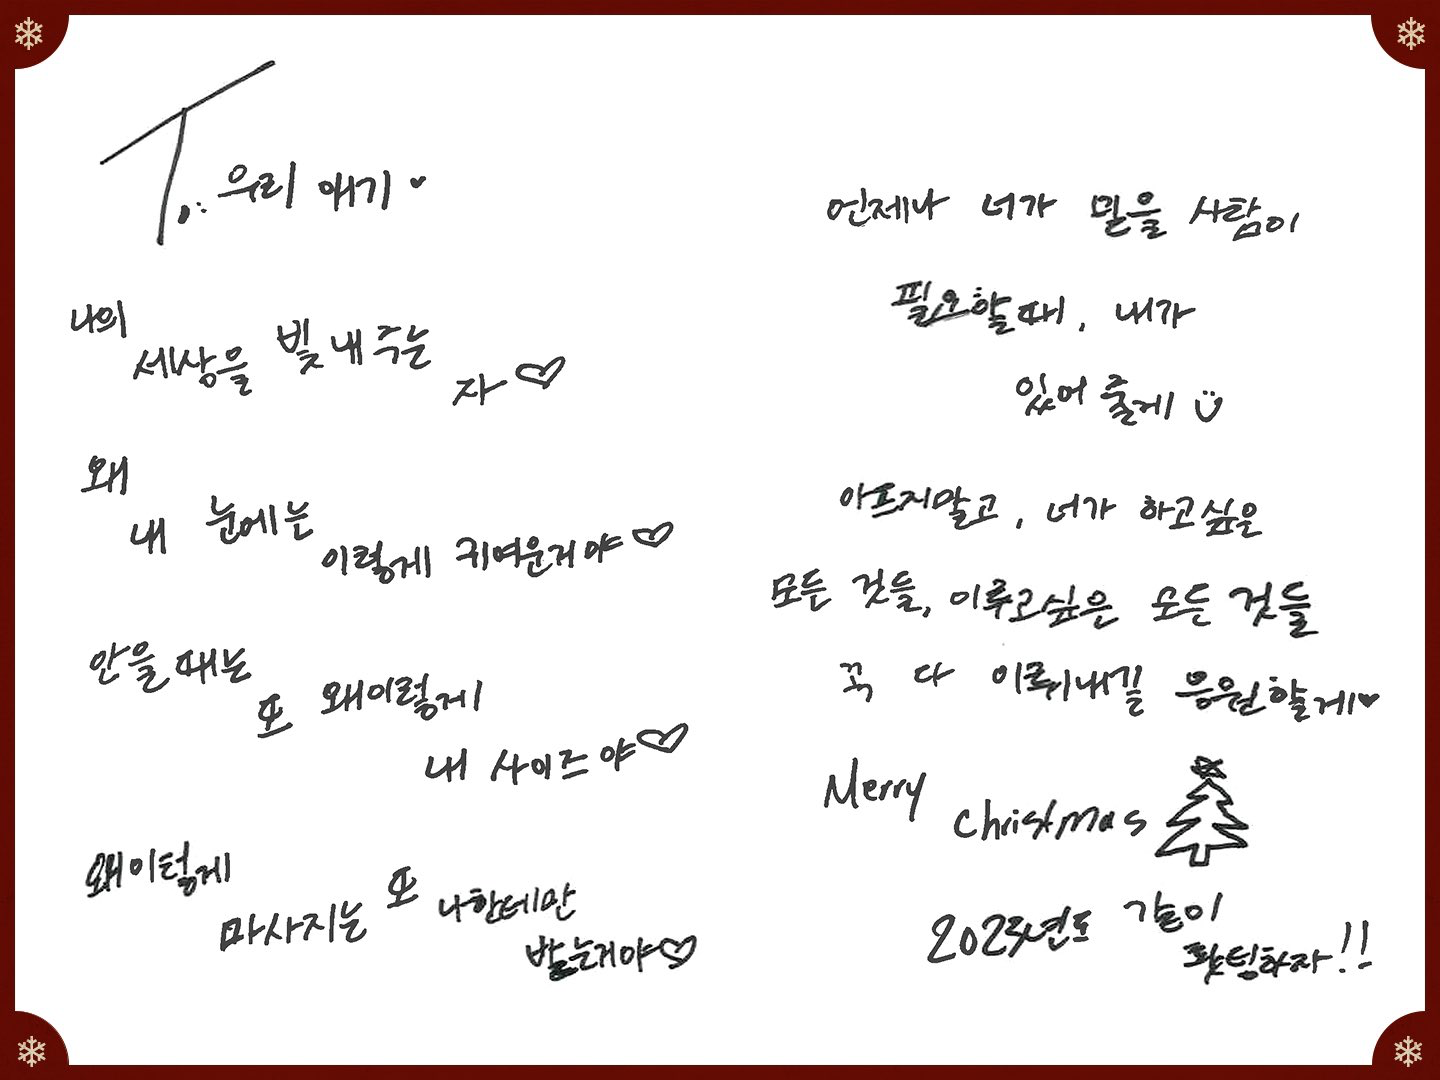 To. 우리 애기♥
나의
세상을 빛내주는
자♡
왜
내 눈에는
이렇게 귀여운거야♡
안을 때는
또 왜이렇게
내 사이즈야♡
왜이렇게
마사지는 또 나한테만
받는거야♡
언제나 너가 믿을 사람이
필요할때, 내가
있어 줄게
아프지말고, 너가 하고싶은
모든 것들, 이루고싶은 모든 것들
꼭 다 이뤄내길 응원할게♥
Merry
Christmas
년도 같이
홧팅하자!!